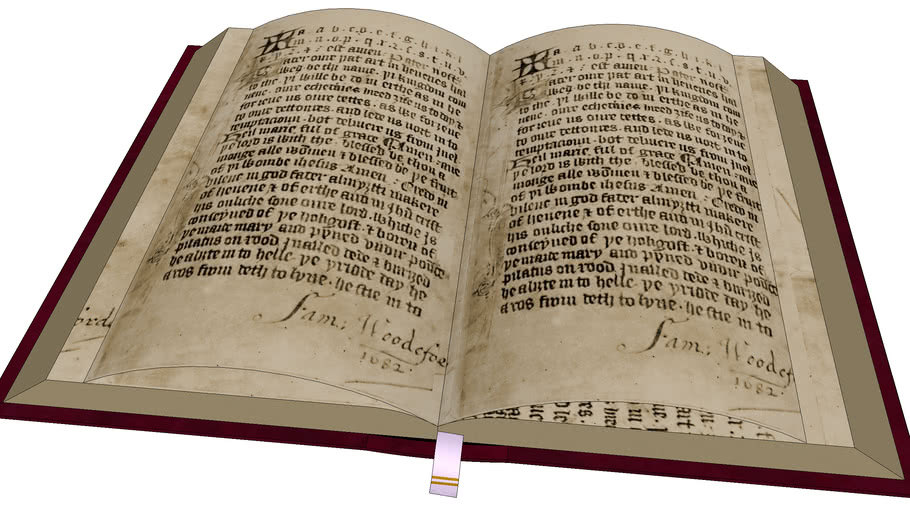 a a b c d e f g h i k l
m n o p q r z s t u v
y z & est amen Pater nost
ater oure þat art in heuenes hal
be thi name. þi kingdom com
to the. þi wille be do in erthe as in he
uene. oure us to day &
for us oure dettes. as we for
to oure dettoures. and lede us in to
temptacioun. bot deliuere us from
Heil marie ful of grace Amen
þe lord is with the. blessed be thou a
monge alle wymen & blessed be þe fruit
of þi wombe ihesus Amen. Credo in
bileue in god fader almyztti makere
of heuene & of erthe and in crist
his onliche sone oure lord. whiche is
conseyued of þe holigost. & boren of
þe maide mary and pyned vndir
pilatus on rood nailed dede & buryed
he alizte in to helle. þe þridde day he
aros from deth to lyue. he stie in to
Sam: Woodefor
1682.
a a b c d e f g h i k l
m n o p q r z s t u v
y z & est amen Pater nost
ater oure þat art in heuenes hal
be thi name. þi kingdom com
to the. þi wille be do in erthe as in he
uene. oure us to day &
for us oure dettes. as we for
to oure dettoures. and lede us in to
temptacioun. bot deliuere us from
Heil marie ful of grace Amen
þe lord is with the. blessed be thou a
monge alle wymen & blessed be þe fruit
of þi wombe ihesus Amen. Credo in
bileue in god fader almyztti makere
of heuene & of erthe and in crist
his onliche sone oure lord. whiche is
conseyued of þe holigost. & boren of
þe maide mary and pyned vndir
pilatus on rood nailed dede & buryed
he alizte in to helle. þe þridde day he
aros from deth to lyue. he stie in to
Sam: Woodef
1682.